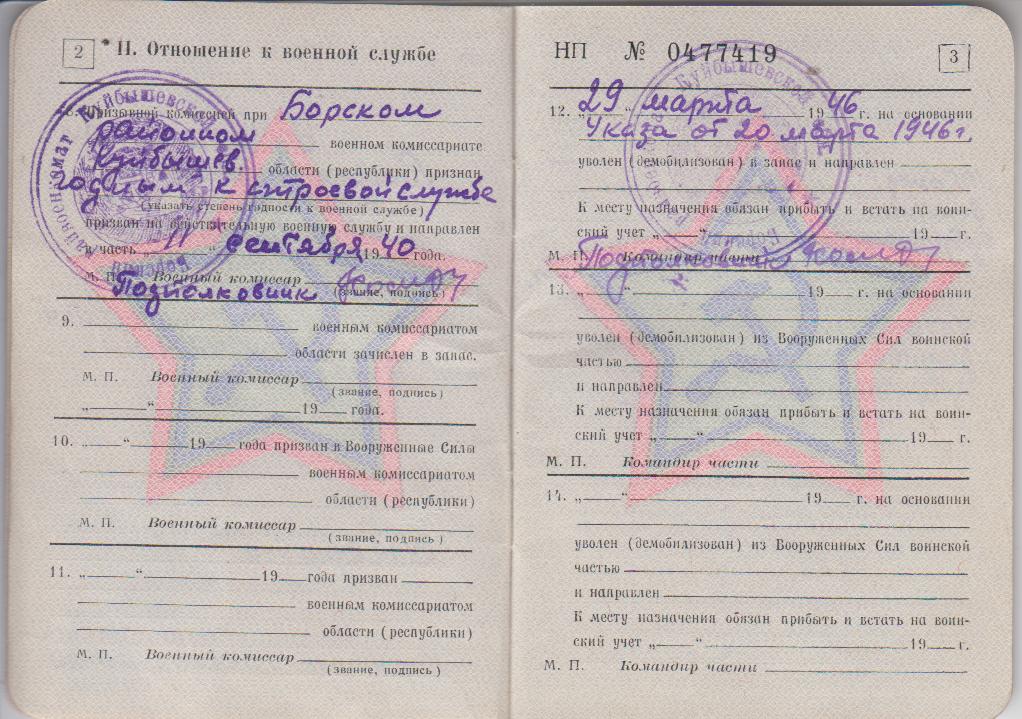 2
II. Отношение к военной службе
8. Призывной комиссией при Борском
районном военном комиссариате
Куйбышев. области (республики) признан
годным к строевой службе
(указать степень годности к военной службе)
призван на действительную военную службу и направлен
в часть „11“ сентября 1940 года.
М. П. Военный комиссар
Подполковник
(звание, подпись)
9.
военным комиссариатом
области зачислен в запас.
М. П. Военный комиссар
(звание, подпись)
„ “ 19 года.
10. „ “ 19 года призван в Вооруженные Силы
военным комиссариатом
области (республики)
М. П. Военный комиссар
(звание, подпись)
11. „ “ 19 года призван
военным комиссариатом
области (республики)
М. П. Военный комиссар
(звание, подпись)
НП № 0477419
3
12. „29“ марта 1946 г. на основании
Указа от 20 марта 1946 г.
уволен (демобилизован) в запас и направлен
К месту назначения обязан прибыть и встать на воин-
ский учет „ “ 19 г.
М. П. Командир части
Подполковник
13. „ “ 19 г. на основании
уволен (демобилизован) из Вооруженных Сил воинской
частью
и направлен
К месту назначения обязан прибыть и встать на воин-
ский учет „ “ 19 г.
М. П. Командир части
14. „ “ 19 г. на основании
уволен (демобилизован) из Вооруженных Сил воинской
частью
и направлен
К месту назначения обязан прибыть и встать на воин-
ский учет „ “ 19 г.
М. П. Командир части